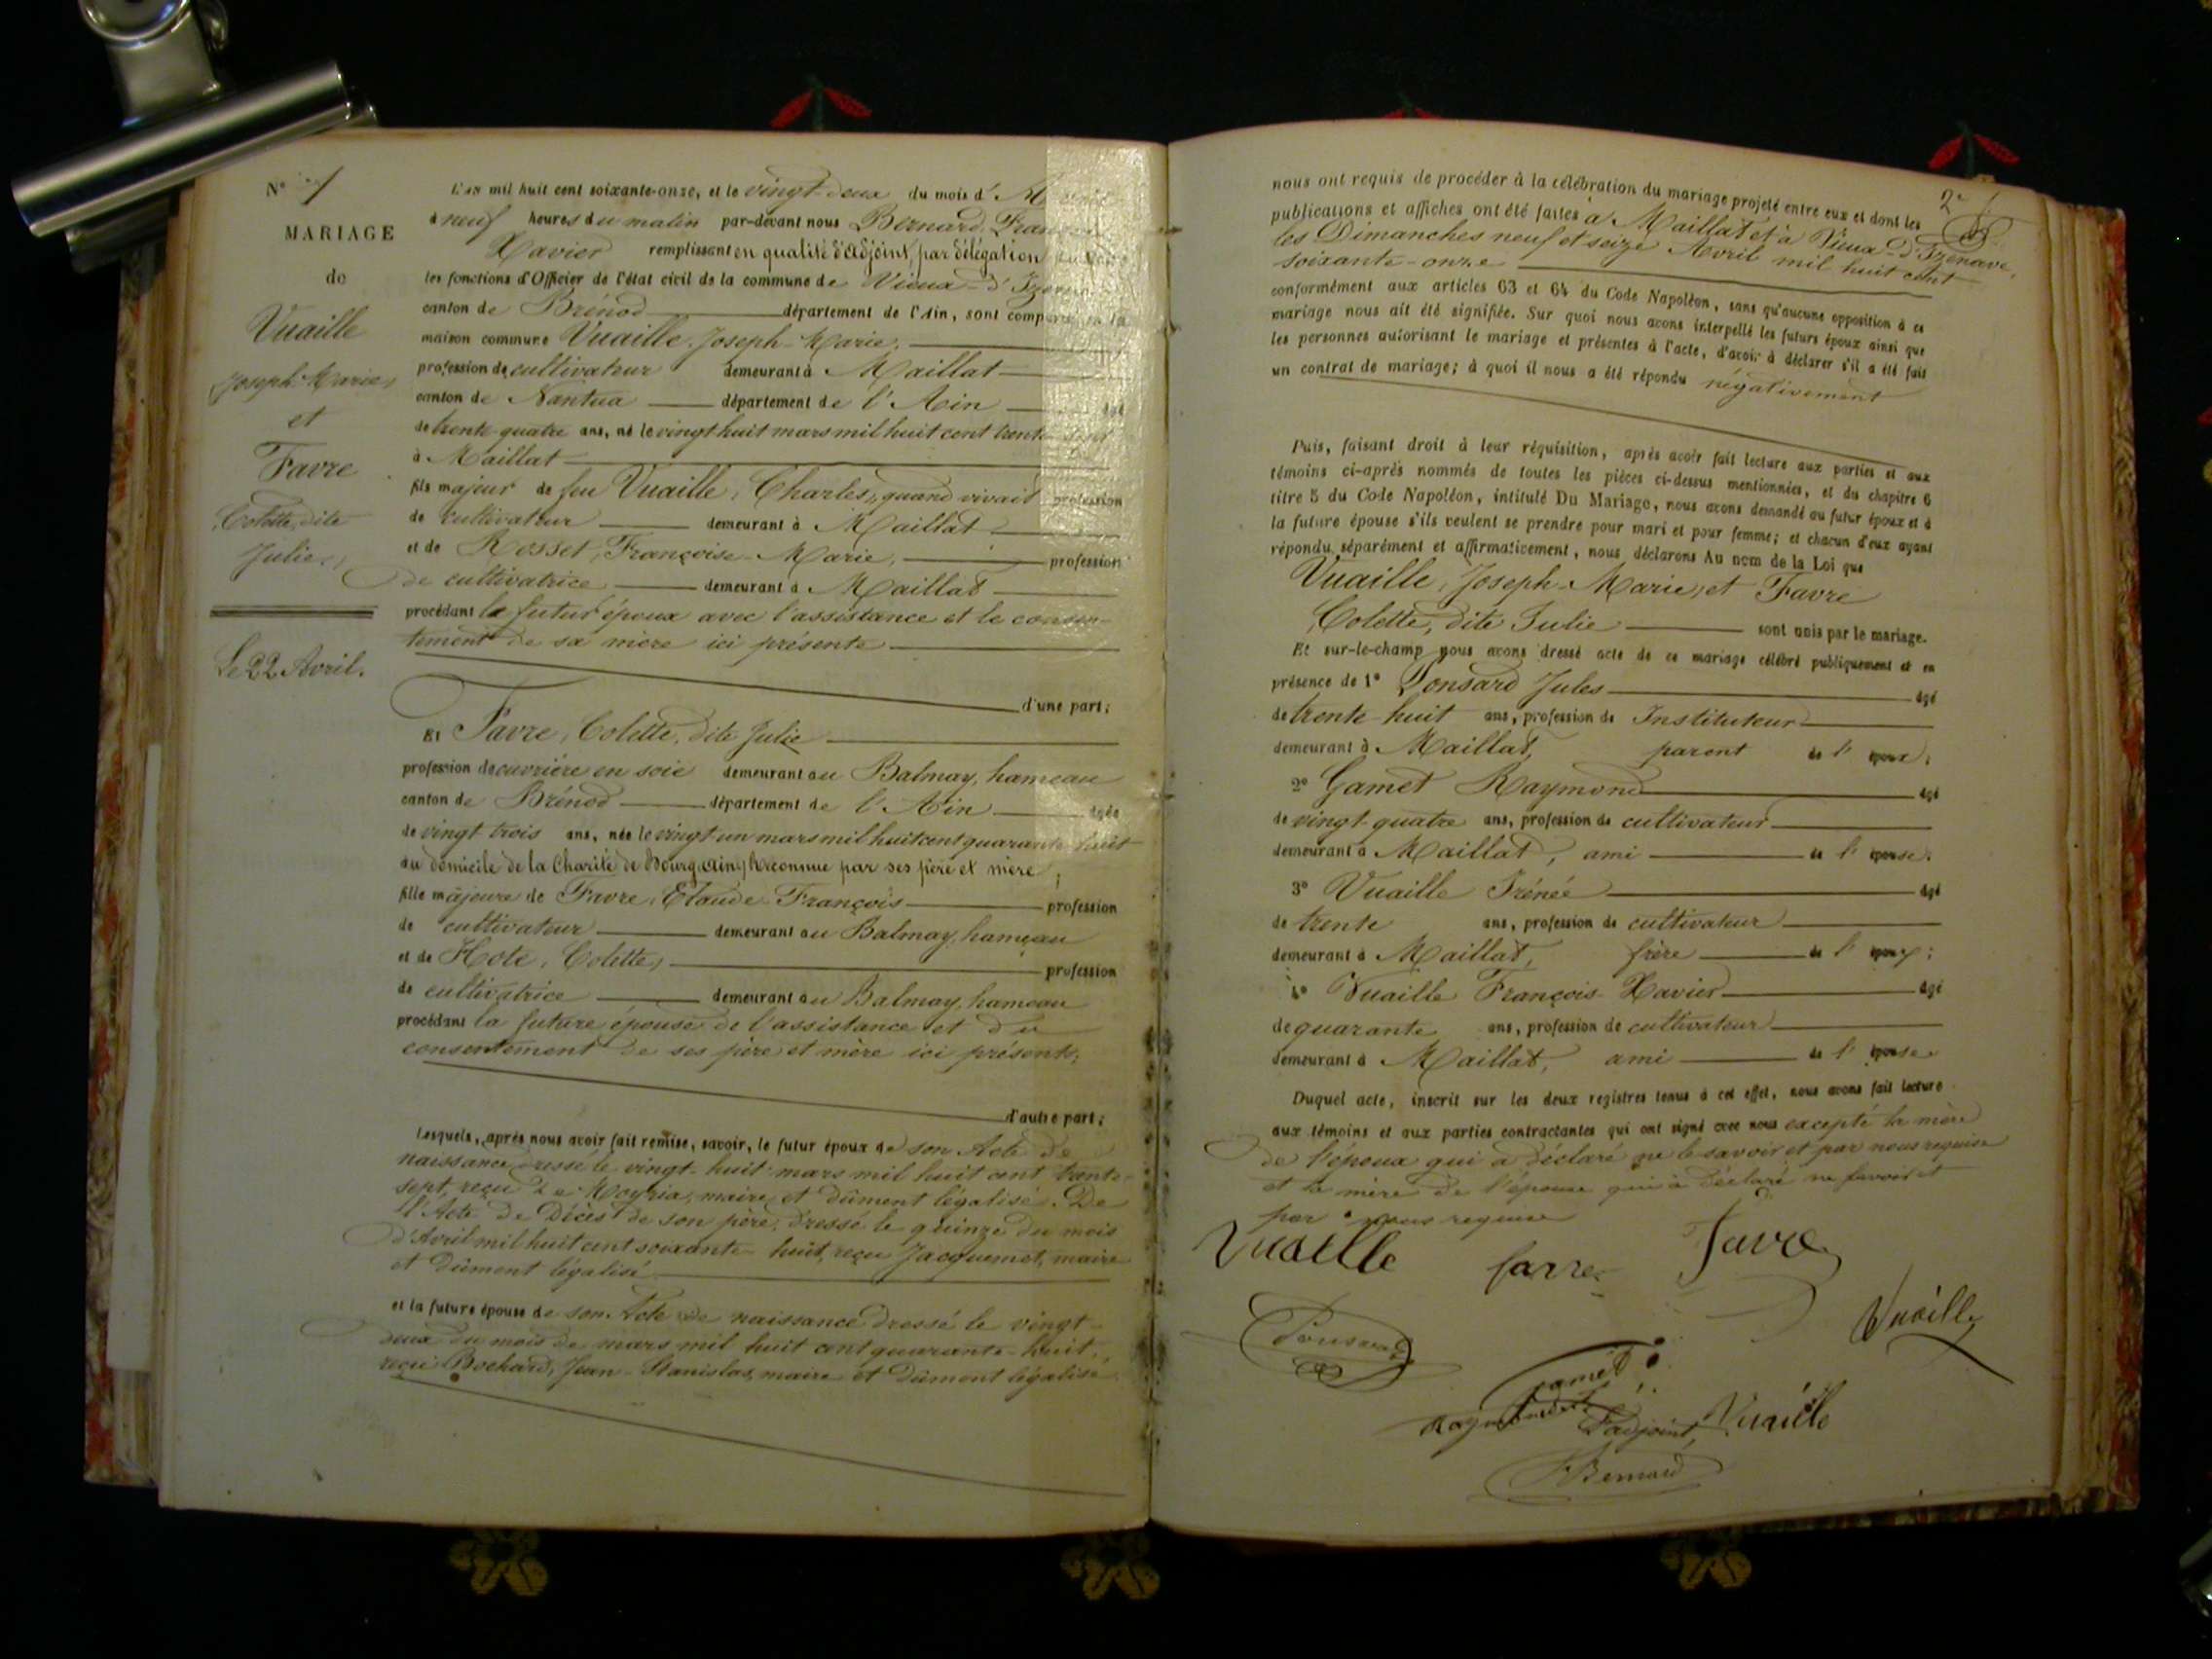 N° 1
MARIAGE
de
Vuaille
Joseph-Marie,
et
Favre
Colette, dite
Julie,
Le 22 Avril.
L'an mil huit cent soixante-onze, et le vingt-deux du mois d'
à neuf heures du matin par-devant nous Bernard, François
Xavier remplissant en qualité d'adjoint, par délégation
les fonctions d'Officier de l'état civil de la commune de Vieux-d'Izenave
canton de Brénod département de l'Ain, sont comparus en la
maison commune Vuaille, Joseph-Marie,
profession de cultivateur demeurant à Maillat
canton de Nantua département de l'Ain âgé
de trente quatre ans, né le vingt huit mars mil huit cent trente sept
à Maillat
fils majeur de feu Vuaille, Charles, quand vivait profession
de cultivateur demeurant à Maillat
et de Rosset, Françoise-Marie, profession
de cultivatrice demeurant à Maillat
procédant le futur époux avec l'assistance et le consen-
tement de sa mère ici présente
d'une part;
Et Favre, Colette, dite Julie
profession de ouvrière en soie demeurant au Balmay, hameau
canton de Brénod département de l'Ain âgée
de vingt trois ans, née le vingt un mars mil huit cent quarante huit
au domicile de la Charité de Bourg reconnue par ses père et mère;
fille majeure de Favre, Claude-François profession
de cultivateur demeurant au Balmay, hameau
et de Hote, Colette, profession
de cultivatrice demeurant au Balmay, hameau
procédant la future épouse de l'assistance et du
consentement de ses père et mère ici présents,
d'autre part;
Lesquels, après nous avoir fait remise, savoir, le futur époux de son Acte de
naissance dressé le vingt-huit mars mil huit cent trente-
sept, reçu De Moyria, maire, et dûment légalisé. De
l'Acte de Décès de son père, dressé le quinze du mois
d'Avril mil huit cent soixante-huit, reçu Jacquemet, maire
et dûment légalisé
et la future épouse de son Acte de naissance dressé le vingt-
deux du mois de mars mil huit cent quarante-huit,
reçu Bochard, Jean-Stanislas, maire et dûment légalisé
2e
nous ont requis de procéder à la célébration du mariage projeté entre eux et dont les
publications et affiches ont été faites à Maillat et à Vieux-d'Izenave,
les Dimanches neuf et seize Avril mil huit cent
soixante-onze
conformément aux articles 63 et 64 du Code Napoléon, sans qu'aucune opposition à ce
mariage nous ait été signifiée. Sur quoi nous avons interpellé les futurs époux ainsi que
les personnes autorisant le mariage et présentes à l'acte, d'avoir à déclarer s'il a été fait
un contrat de mariage; à quoi il nous a été répondu négativement
Puis, faisant droit à leur réquisition, après avoir fait lecture aux parties et aux
témoins ci-après nommés de toutes les pièces ci-dessus mentionnées, et du chapitre 6
titre 5 du Code Napoléon, intitulé Du Mariage, nous avons demandé au futur époux et à
la future épouse s'ils veulent se prendre pour mari et pour femme; et chacun d'eux ayant
répondu séparément et affirmativement, nous déclarons Au nom de la Loi que
Vuaille, Joseph-Marie, et Favre
Colette, dite Julie sont unis par le mariage.
Et sur-le-champ nous avons dressé acte de ce mariage célébré publiquement et en
présence de 1° Ponsard Jules âgé
de trente-huit ans, profession de Instituteur
demeurant à Maillat, parent de l'époux;
2° Gamet Raymond âgé
de vingt-quatre ans, profession de cultivateur
demeurant à Maillat, ami de l'épouse.
3° Vuaille Irénée âgé
de trente ans, profession de cultivateur
demeurant à Maillat, frère de l'époux;
4° Vuaille François-Xavier âgé
de quarante ans, profession de cultivateur
demeurant à Maillat, ami de l'épouse
Duquel acte, inscrit sur les deux registres tenus à cet effet, nous avons fait lecture
aux témoins et aux parties contractantes qui ont signé avec nous excepté la mère
de l'époux qui a déclaré ne le savoir et par nous requise
et la mère de l'épouse qui a déclaré ne savoir et
par nous requise
Vuaille favre Favre
Ponsard Vuaille
Gamet
Raymond L'adjoint, Vuaille
Bernard